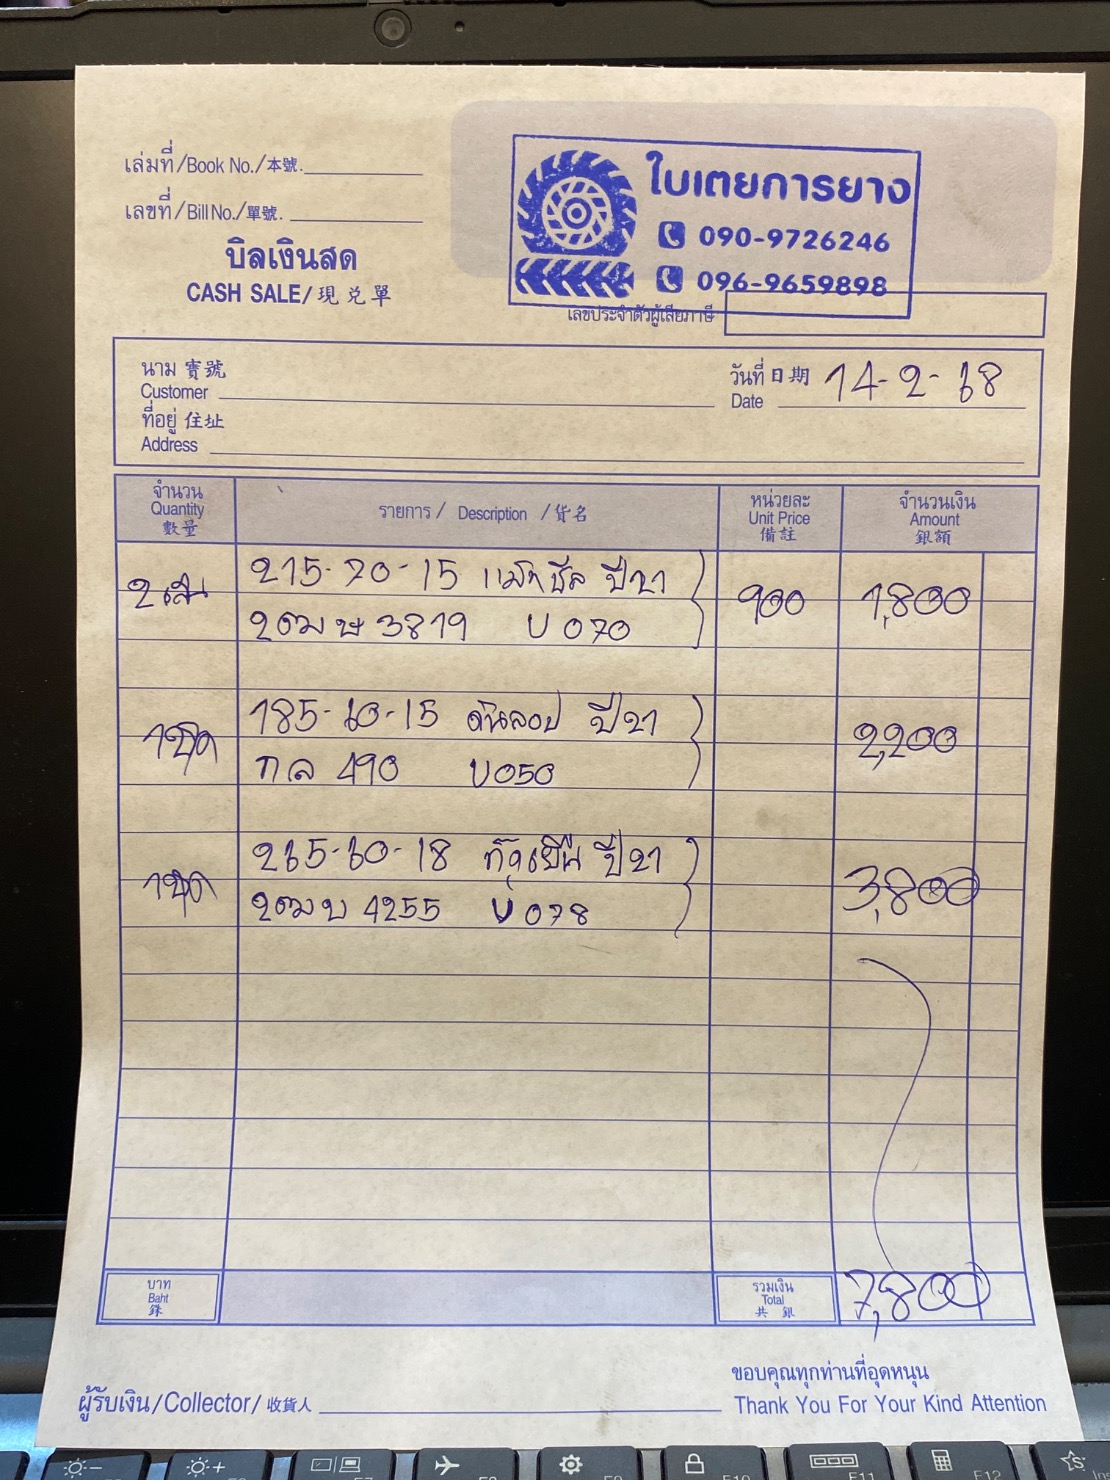 เล่มที่/Book No./本號.
เลขที่/Bill No./單號.
บิลเงินสด
CASH SALE/現兑單
ใบเตยการยาง
090-9726246
096-9659898
เลขประจำตัวผู้เสียภาษี
นาม 寶號
Customer
วันที่ 日期 14-2-68
Date
ที่อยู่ 住址
Address
จำนวน
Quantity
數量
รายการ / Description / 貨名
หน่วยละ
Unit Price
備註
จำนวนเงิน
Amount
銀額
2 เส้น 215-70-15 ปี21 900 1,800
3819 U 070
1ชุด 185-60-15 ดันลอป ปี21 2,200
กล 490 U050
1ชุด 265-60-18 ปี21 3,800
4255 U 078
บาท
Baht
銖
รวมเงิน
Total
共 銀
7,800
ผู้รับเงิน/Collector/收貨人
ขอบคุณทุกท่านที่อุดหนุน
Thank You For Your Kind Attention